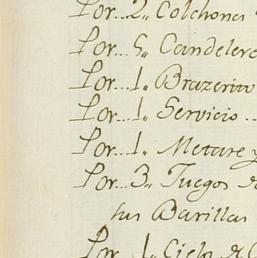 Por... 2,, Colchones
Por... 5,, Candelero
Por... 1,, Brazerito
Por... 1,, Servicio ..
Por... 1,, Metate y
Por... 3,, Juegos de
sus Barillas
Por 1,, Cielo de